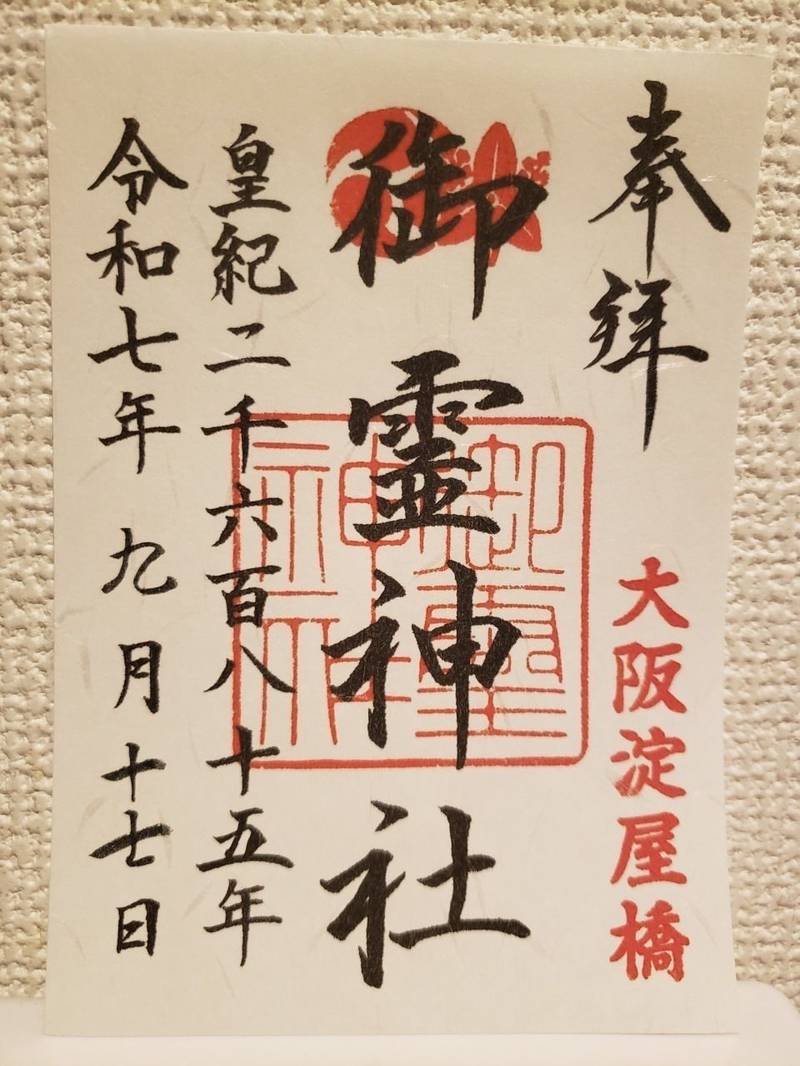 奉拝
大阪淀屋橋
御霊神社
御霊神社
皇紀二千六百八十五年
令和七年 九月十七日